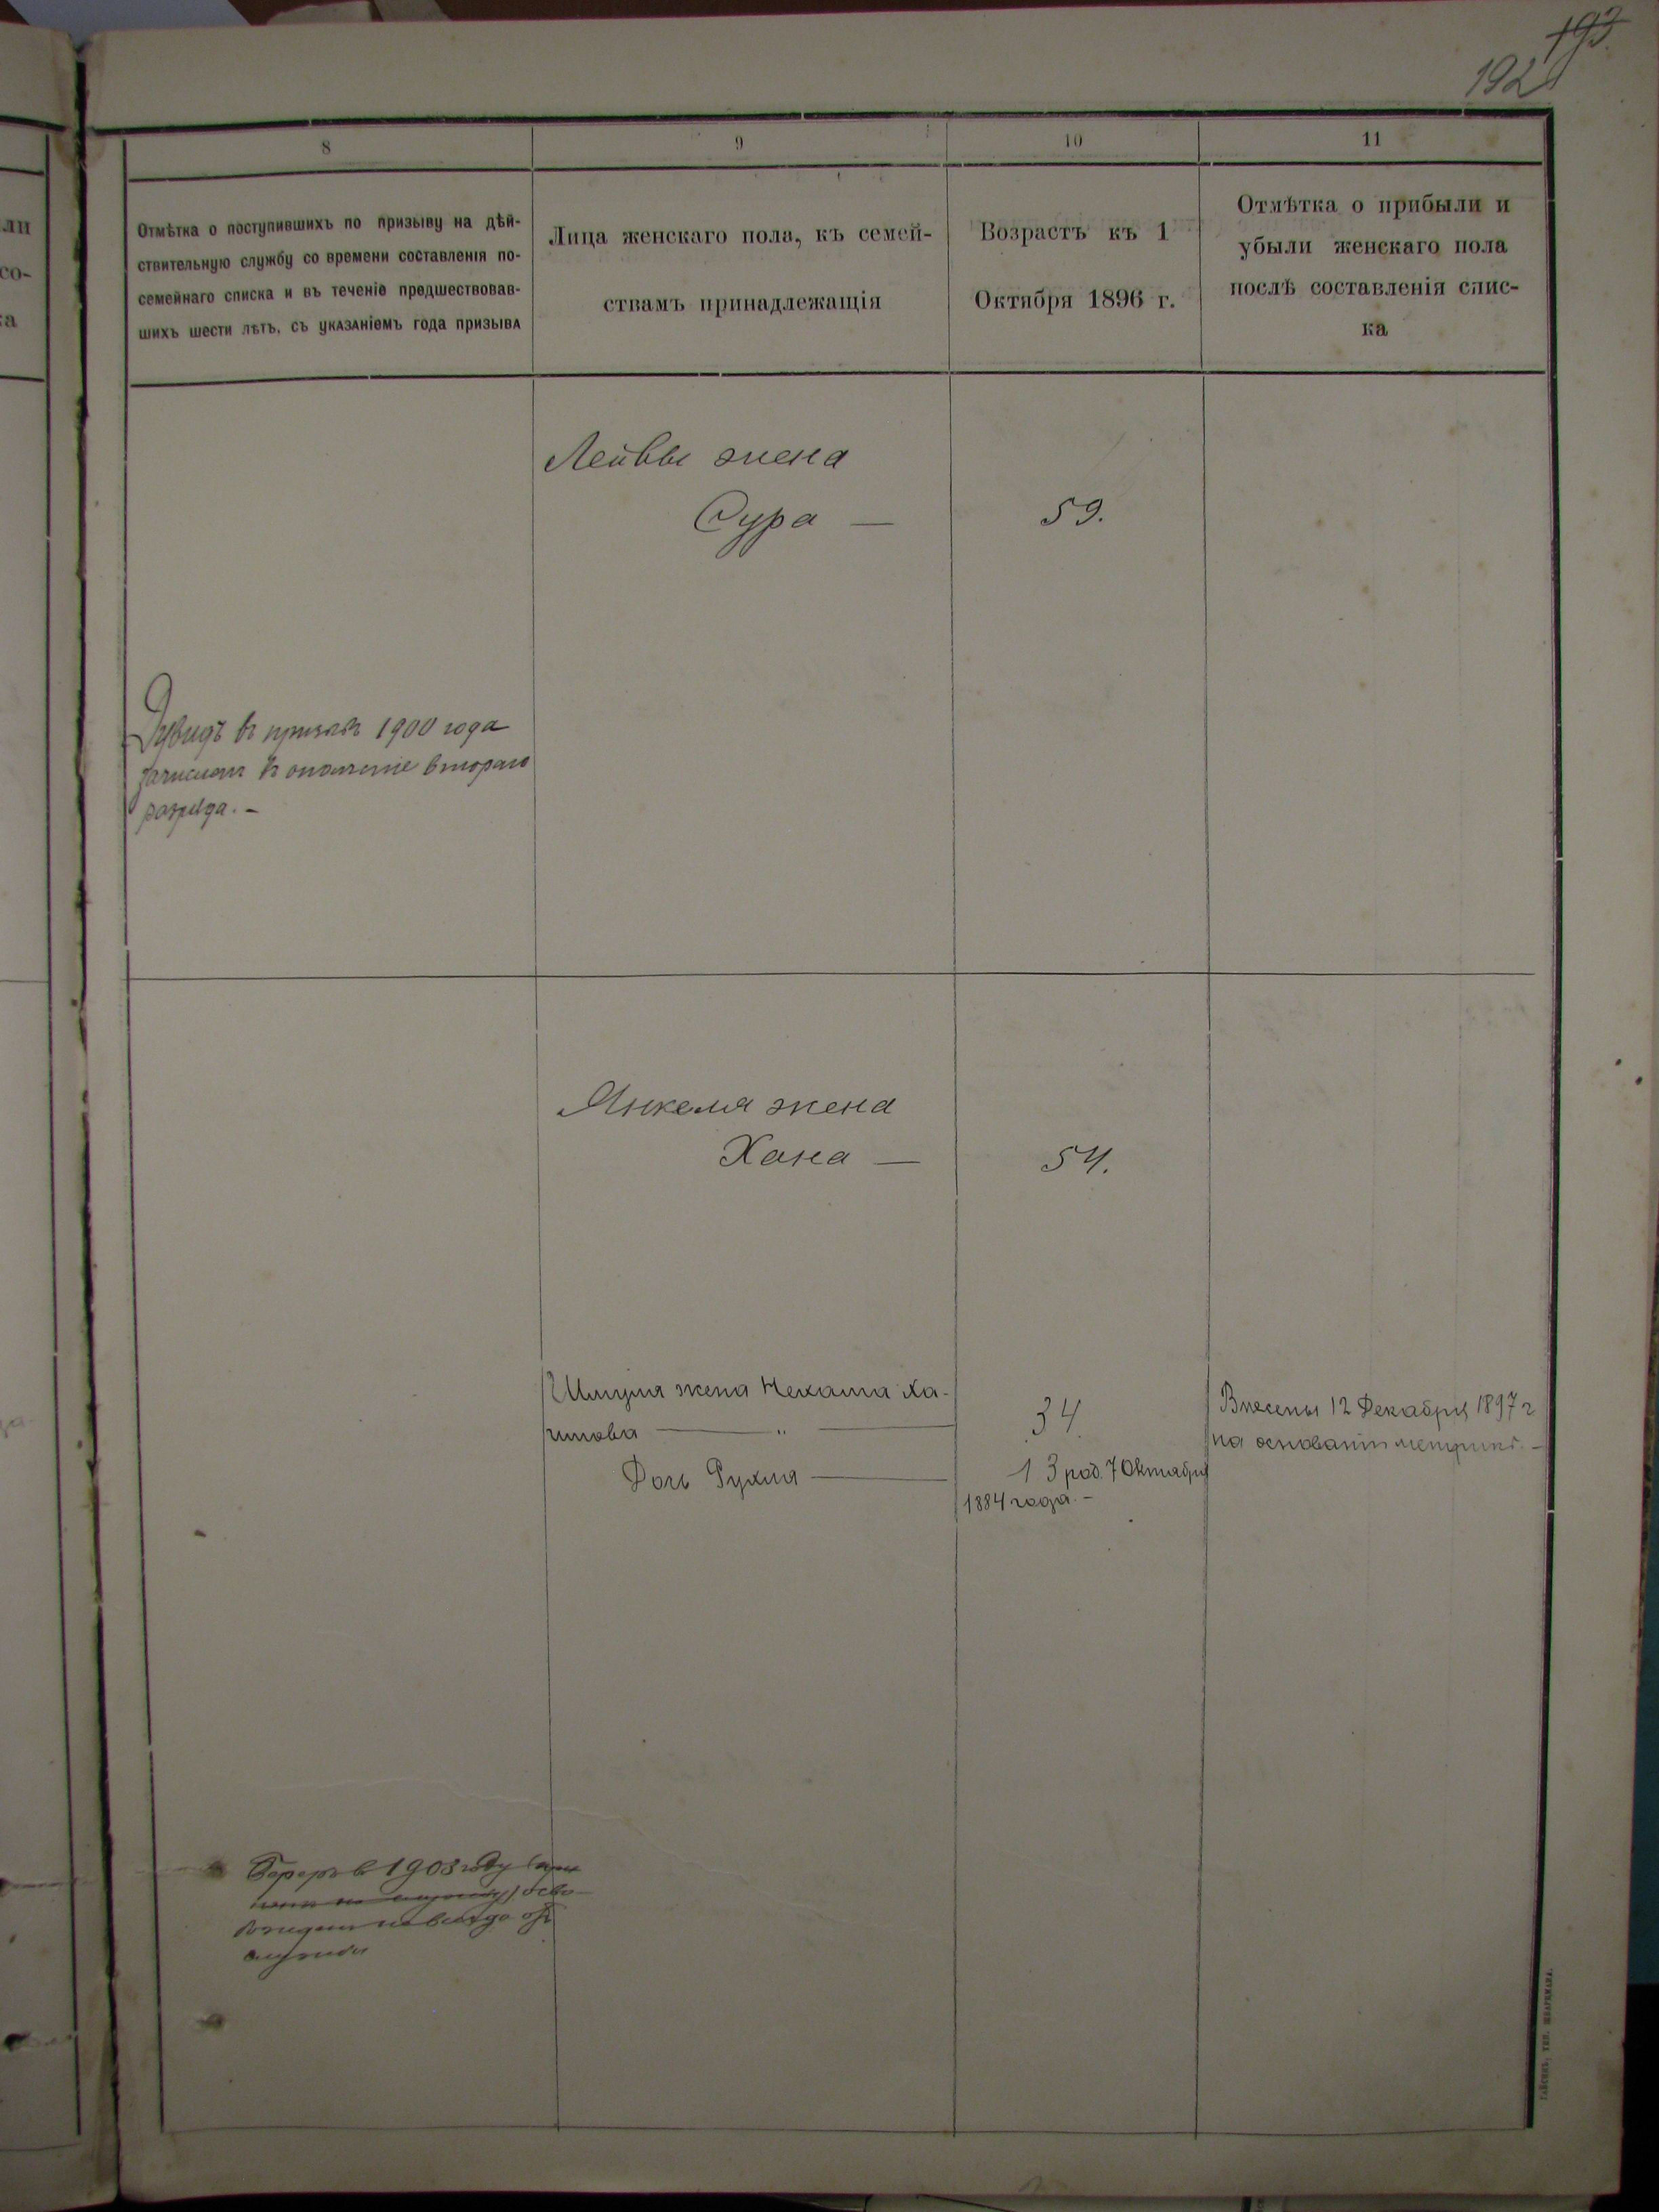 193.
192
8
9
10
11
Отмѣтка о поступившихъ по призыву на дѣй-
ствительную службу со времени составленія по-
семейнаго списка и въ теченіе предшествовав-
шихъ шести лѣтъ, съ указаніемъ года призыва
Лица женскаго пола, къ семей-
ствамъ принадлежащія
Возрастъ къ 1
Октября 1896 г.
Отмѣтка о прибыли и
убыли женскаго пола
послѣ составленія спис-
ка
ли
со-
ка
Лейввы жена
Сура — 59.
Дувидъ въ призывъ 1900 года
зачисленъ въ ополченіе втораго
разряда. —
Янкеля жена
Хана — 54.
Шмуля жена Нехама Ха-
имова — " — 34
Дочь Рухля — 13 род. 7 Октября
1884 года. —
Внесены 12 Декабря 1897 г
на основаніи метрикъ. —
въ 1903 году
осво-
божденъ навсегда отъ
службы
ГАЙСИНЪ, ТИП. ШВАРЦМАНА.